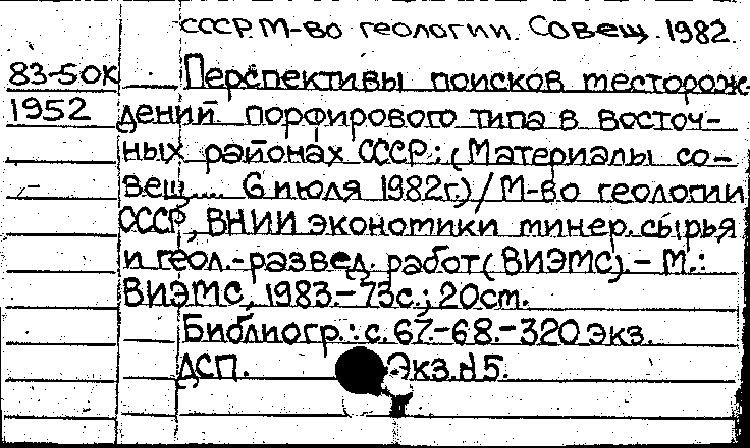 СССР М-во геологии. Совещ. 1982.
83-50К Перспективы поисков месторож-
1952 дений порфирового типа в восточ-
ных районах СССР.: (Материалы со-
вещ.... 6 июля 1982г.) / М-во геологии
СССР, ВНИИ экономики минер. сырья
и геол.-развед. работ (ВИЭМС). – М.:
ВИЭМС, 1983.– 73с.; 20см.
Библиогр.: с. 67.-68.-320 экз.
ДСП. Экз.